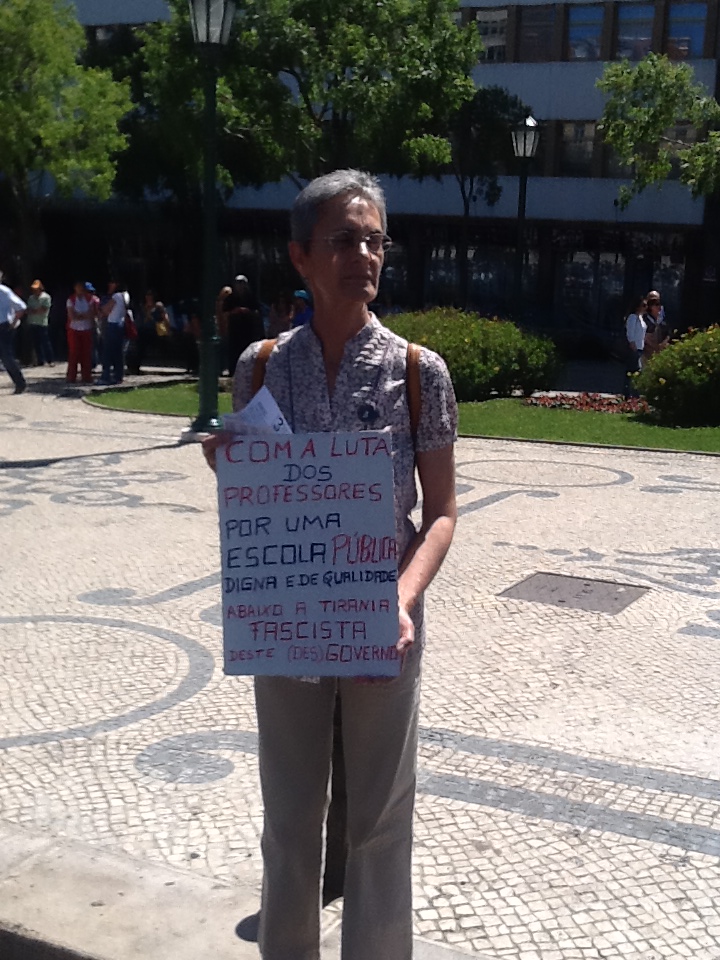 COM A LUTA
DOS
PROFESSORES
POR UMA
ESCOLA PÚBLICA
DIGNA E DE QUALIDADE
ABAIXO A TIRANIA
FASCISTA
DESTE (DES)GOVERNO